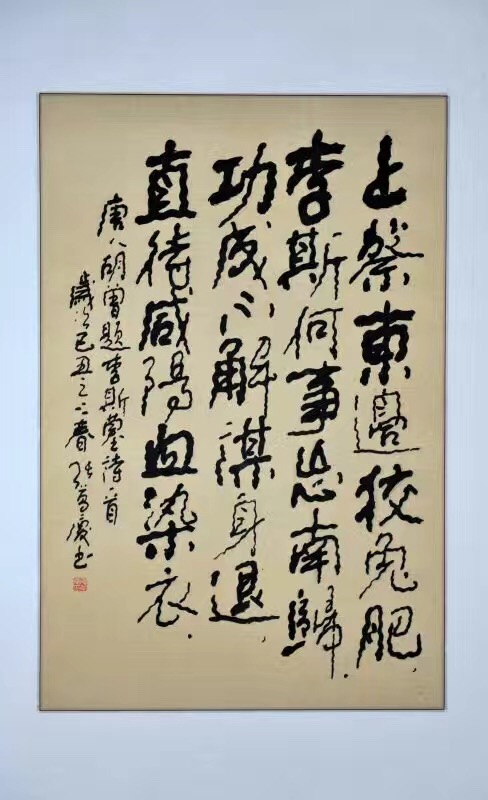 上蔡東邊狡兔肥
李斯何事忘南歸
功成不解謀身退
直待咸陽血染衣
唐人胡曾題李斯墓詩一首
歲次己丑之春 張慶書